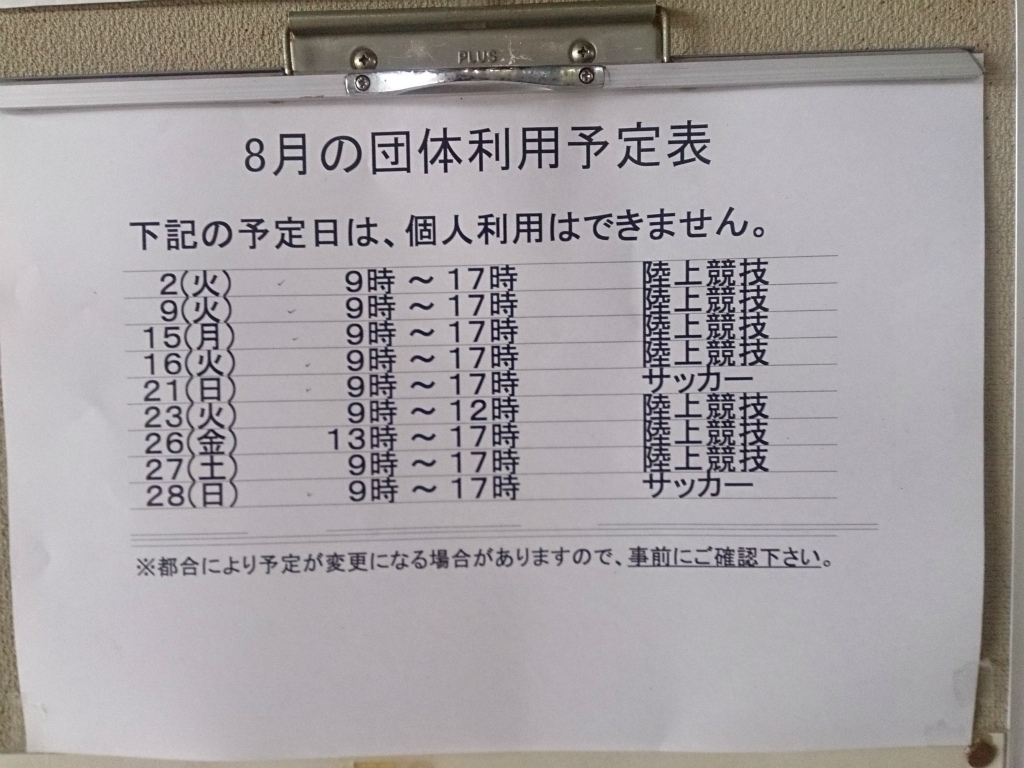 PLUS
8月の団体利用予定表
下記の予定日は、個人利用はできません。
2(火) 9時 ～ 17時 陸上競技
9(火) 9時 ～ 17時 陸上競技
15(月) 9時 ～ 17時 陸上競技
16(火) 9時 ～ 17時 陸上競技
21(日) 9時 ～ 17時 サッカー
23(火) 9時 ～ 12時 陸上競技
26(金) 13時 ～ 17時 陸上競技
27(土) 9時 ～ 17時 陸上競技
28(日) 9時 ～ 17時 サッカー
※都合により予定が変更になる場合がありますので、事前にご確認下さい。